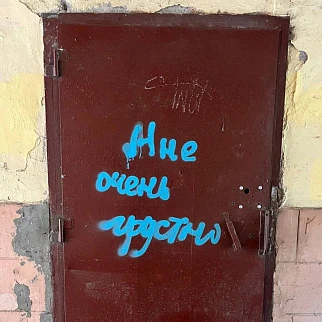 Мне
очень
грустно